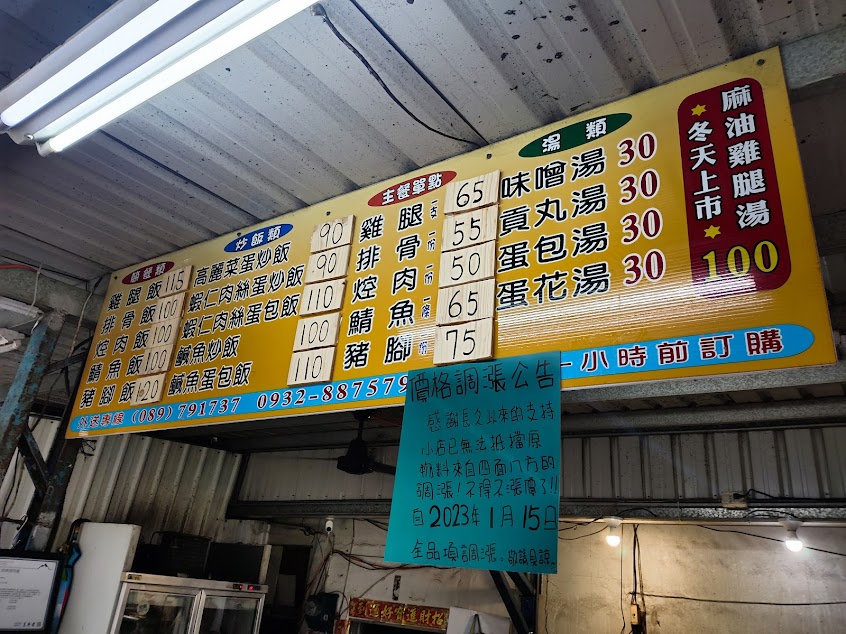 飯餐類
雞腿飯 115
排骨飯 100
焢肉飯 100
鯖魚飯 100
豬腳飯 120
炒飯類
高麗菜蛋炒飯 90
蝦仁肉絲蛋炒飯 90
蝦仁肉絲蛋包飯 110
鹹魚炒飯 100
鹹魚蛋包飯 110
主餐單點
雞腿 65
排骨 55
焢肉 50
鯖魚 65
豬腳 75
湯類
味噌湯 30
貢丸湯 30
蛋包湯 30
蛋花湯 30
麻油雞腿湯
★冬天上市★
100
外送專線 (089)791737 0932-887579
一小時前訂購
價格調漲公告
感謝長久以來的支持
小店已無法抵擋原
物料來自四面八方的
調漲!不得不漲價了!!
自2023年1月15日
全品項調漲。敬請見諒。